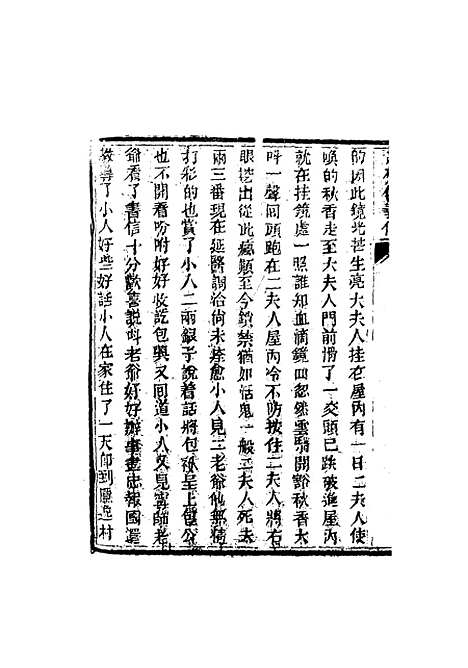 的因此鏡光甚生亮大夫人挂在屋內有一日二夫人使
喚的秋香走至大夫人門前滑了一交頭已跌破進屋內
就在挂鏡處一照誰知血滴鏡面忽然雲翳開豁秋香大
呌一聲回頭跑在二夫人屋內冷不防按住二夫人將右
眼挖出從此瘋顚至今鎖禁猶如活鬼一般三夫人死去
兩三番現在延醫調治尙未痊愈小人見三老爺他無精
打彩的也賞了小人二兩銀子說着話將包袱呈上包公
也不開看吩咐好好收訖包興又回道小人又見甯師老
爺看了書信十分歡喜說叫老爺好好辦事盡忠報國還
敎導了小人好些好話小人在家住了一天卽到隱逸村